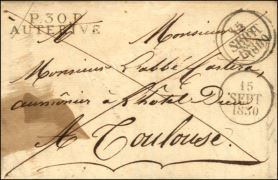 P.30.P.
AUTERIVE
15
SEPT
1830
A Monsieur
Monsieur L'abbé
aumônier à L'hôtel Dieu
A Toulouse.
15
SEPT
1830